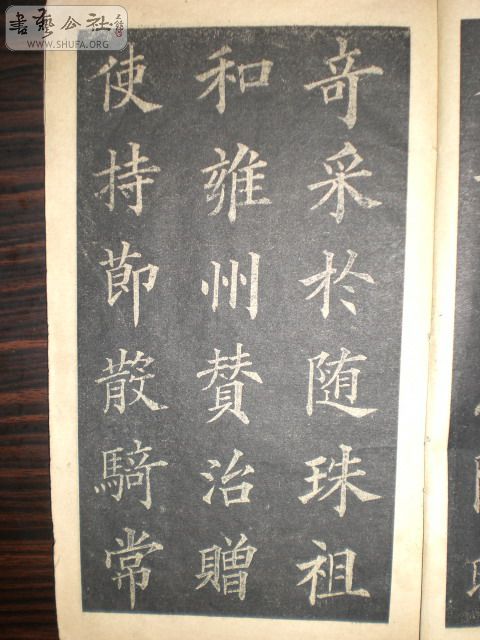 奇采於随珠祖
和雍州賛治贈
使持節散騎常
書藝公社
WWW.SHUFA.ORG